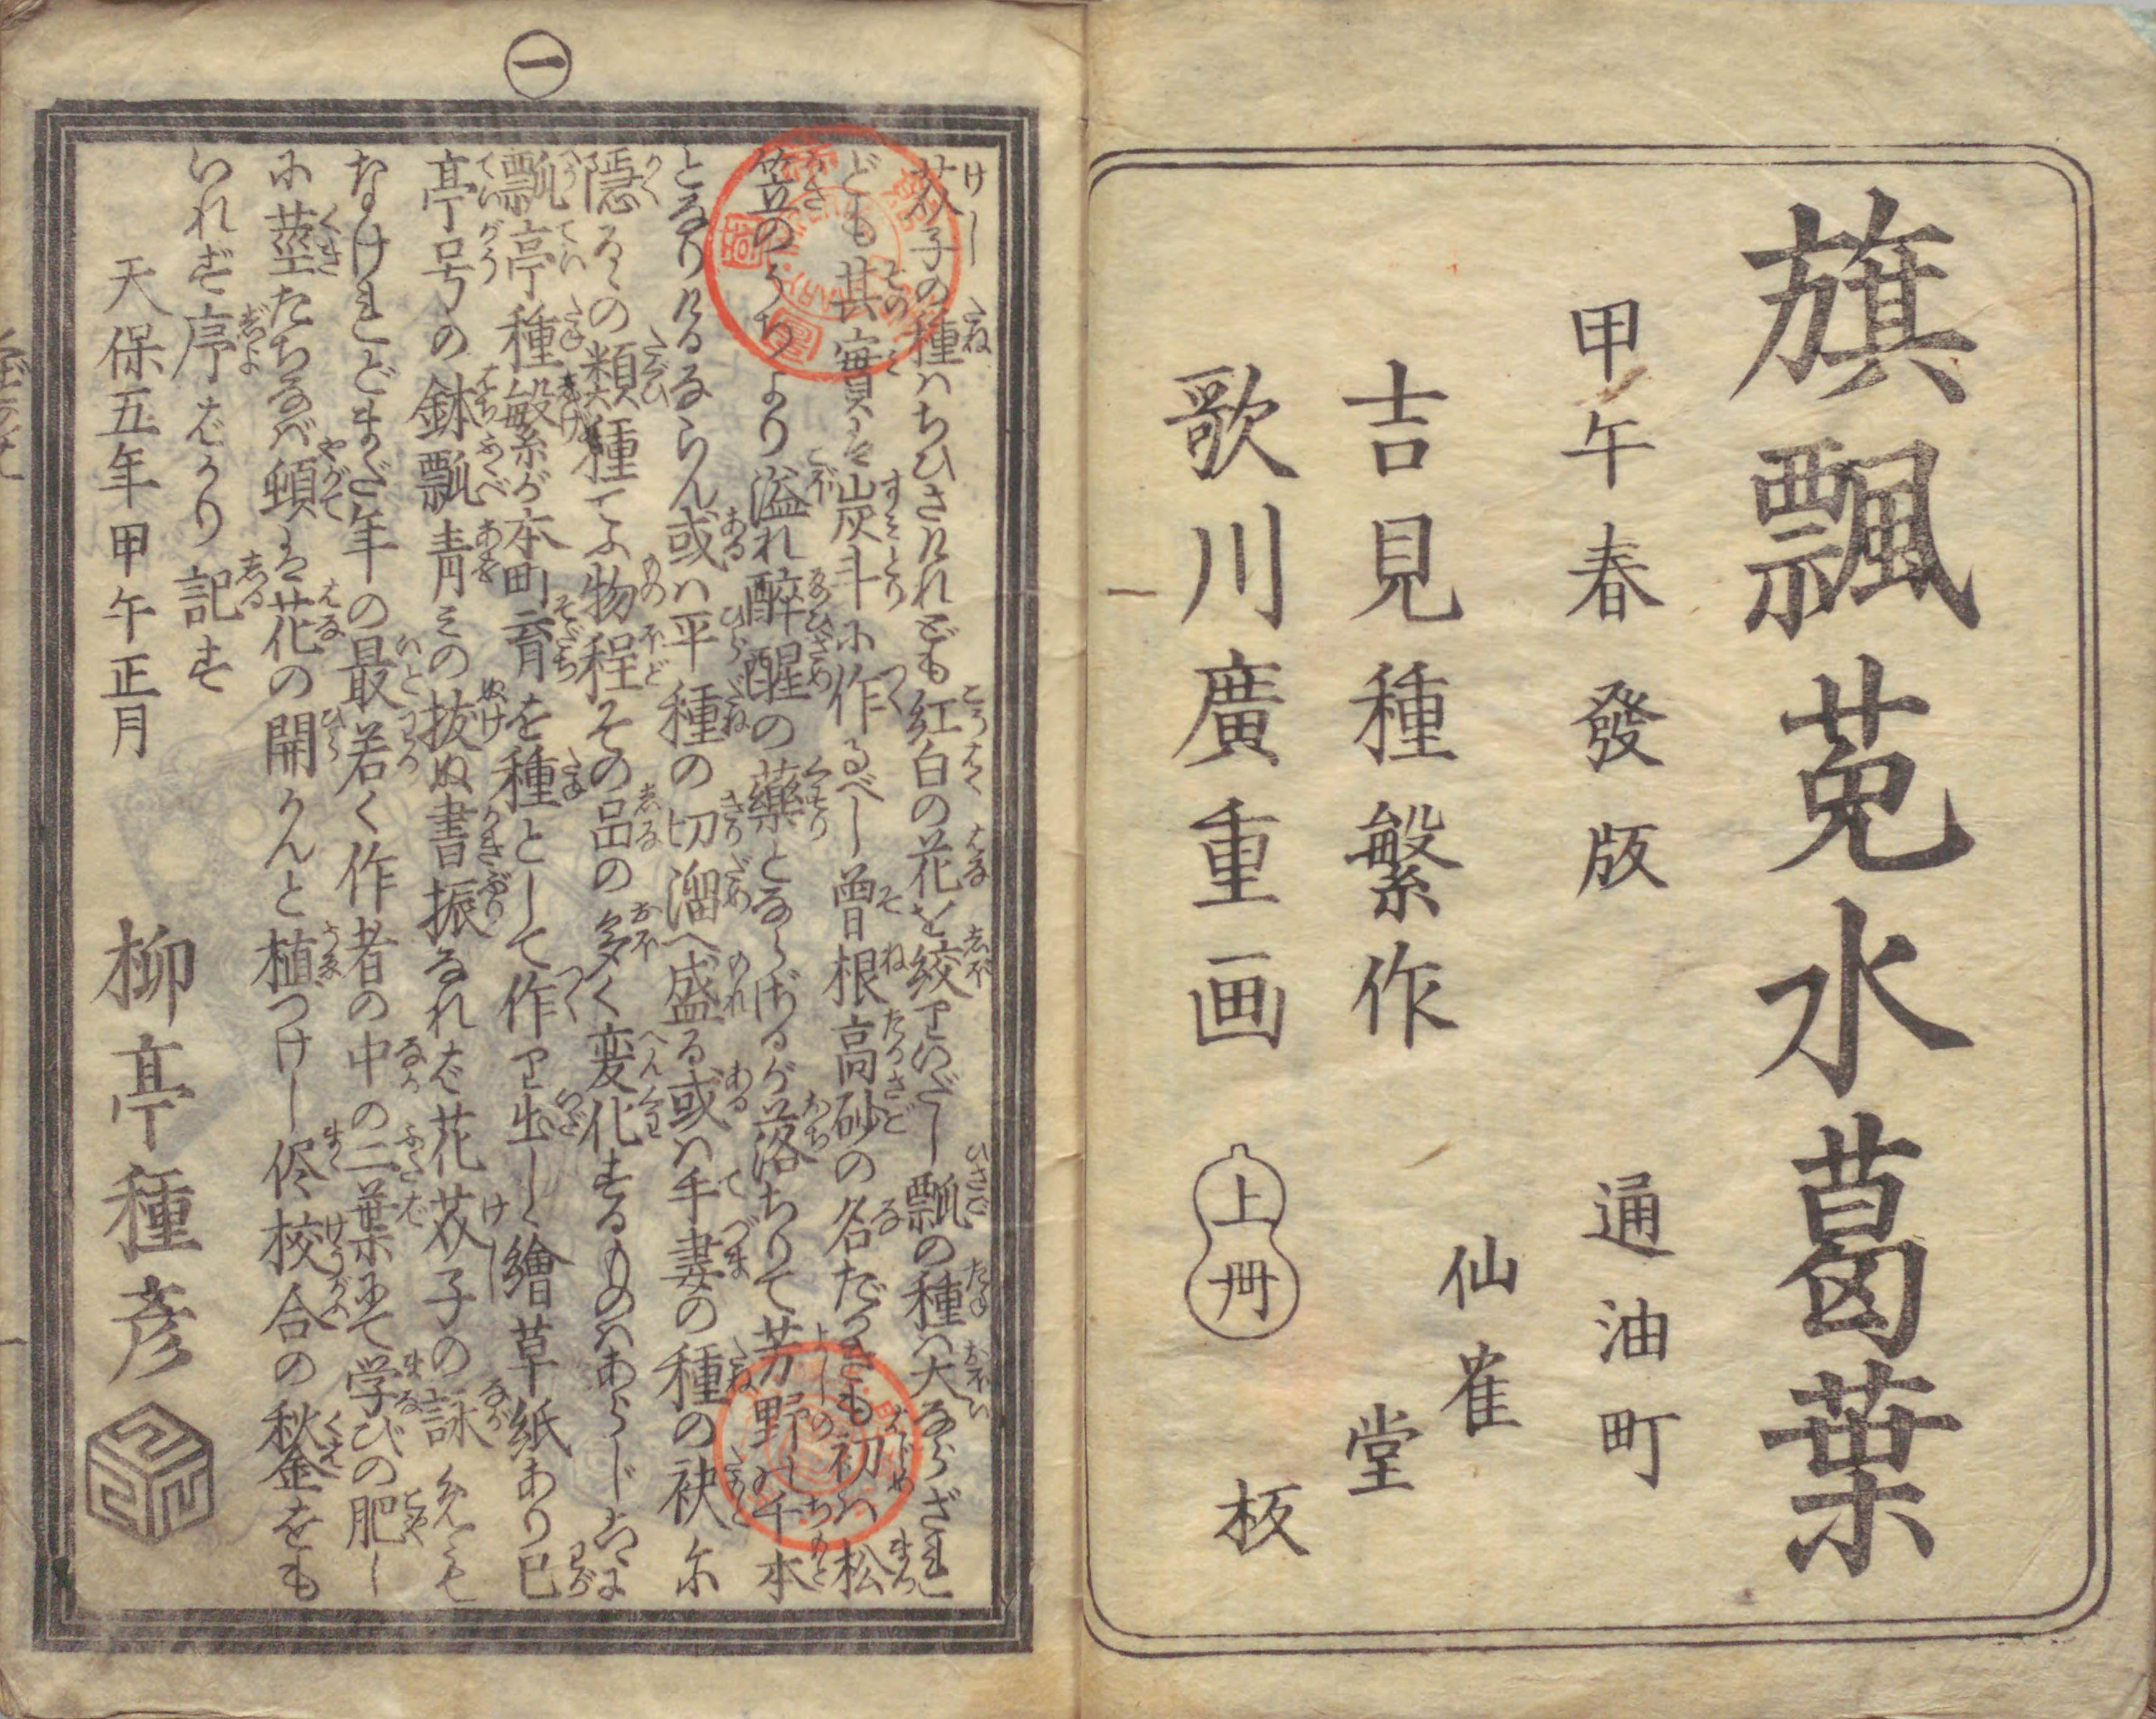 旗飄菟水葛葉
甲午春發版
通油町
吉見種繁作
仙雀堂
歌川廣重画
上冊
板
一
芥子の種ハちひさけれども紅白の花を絞りいだし瓢の種ハ大ならざれ
ども其實を炭斗に作るべし曽根高砂の名だかきも初ハ松
笠のうちより溢れ醉醒の藥とならばるが落ちりて芳野の千本
となりけるならん或ハ平種の切溜へ盛る或ハ手妻の種の袂に
隠るゝの類種てふ物程その品の多く変化するものハあらじ
瓢亭種繁が本町育を種として作り出しゝ繪草紙あり
亭号の鉢瓢青きの抜ぬ書振なれば花芥子の詠
なけれどまだ年の最若く作者の中の二葉にて学びの肥し
に莖たちなば頓て花の開かんと植つけし侭校合の秋金をも
いれず序ばかり記す
天保五年甲午正月
柳亭種彦